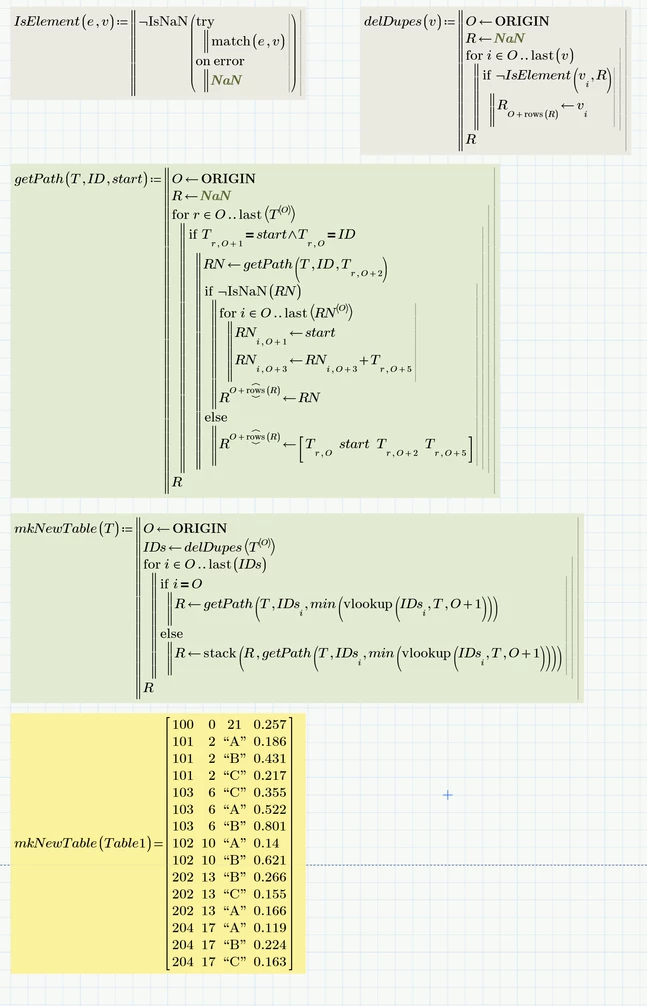 IsElement(e,v):=
¬IsNaN(try
match(e,v)
on error
NaN)
delDupes(v):=
O←ORIGIN
R←NaN
for i∈O..last(v)
if ¬IsElement(v_i,R)
R_O+rows(R)←v_i
R
getPath(T,ID,start):=
O←ORIGIN
R←NaN
for r∈O..last(T^⟨O⟩)
if T_r,O+1=start∧T_r,O=ID
RN←getPath(T,ID,T_r,O+2)
if ¬IsNaN(RN)
for i∈O..last(RN^⟨O⟩)
RN_i,O+1←start
RN_i,O+3←RN_i,O+3+T_r,O+5
R^O+rows(R)←RN
else
R^O+rows(R)←[T_r,O start T_r,O+2 T_r,O+5]
R
mkNewTable(T):=
O←ORIGIN
IDs←delDupes(T^⟨O⟩)
for i∈O..last(IDs)
if i=O
R←getPath(T,IDs_i,min(vlookup(IDs_i,T,O+1)))
else
R←stack(R,getPath(T,IDs_i,min(vlookup(IDs_i,T,O+1))))
R
mkNewTable(Table1)=
100 0 21 0.257
101 2 “A” 0.186
101 2 “B” 0.431
101 2 “C” 0.217
103 6 “C” 0.355
103 6 “A” 0.522
103 6 “B” 0.801
102 10 “A” 0.14
102 10 “B” 0.621
202 13 “B” 0.266
202 13 “C” 0.155
202 13 “A” 0.166
204 17 “A” 0.119
204 17 “B” 0.224
204 17 “C” 0.163